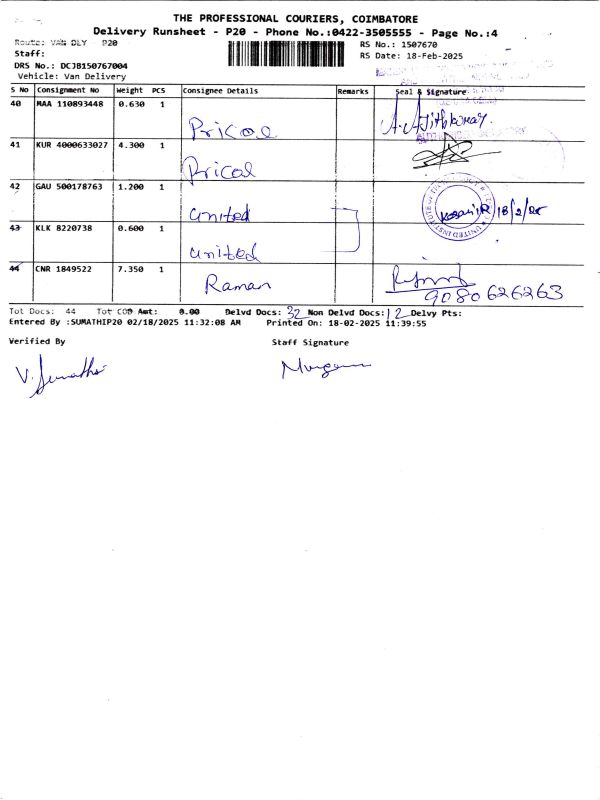 THE PROFESSIONAL COURIERS, COIMBATORE
Delivery Runsheet - P20 - Phone No.:0422-3505555 - Page No.:4
Route: VAN DLY P20
RS No.: 1507670
Staff:
RS Date: 18-Feb-2025
DRS No.: DCJB150767004
Vehicle: Van Delivery
S No Consignment No Weight PCS Consignee Details Remarks Seal & Signature
40 MAA 110893448 0.630 1 Pricol A. Ajithkumar
41 KUR 4000633027 4.300 1 Pricol
42 GAU 500178763 1.200 1 united 18/2/25
43 KLK 8220738 0.600 1 united
44 CNR 1849522 7.350 1 Raman
9080626263
Tot Docs: 44 Tot COD Amt: 0.00 Delvd Docs: 32 Non Delvd Docs: 12 Delvy Pts:
Entered By :SUMATHIP20 02/18/2025 11:32:08 AM Printed On: 18-02-2025 11:39:55
Verified By Staff Signature
V. Sumathi